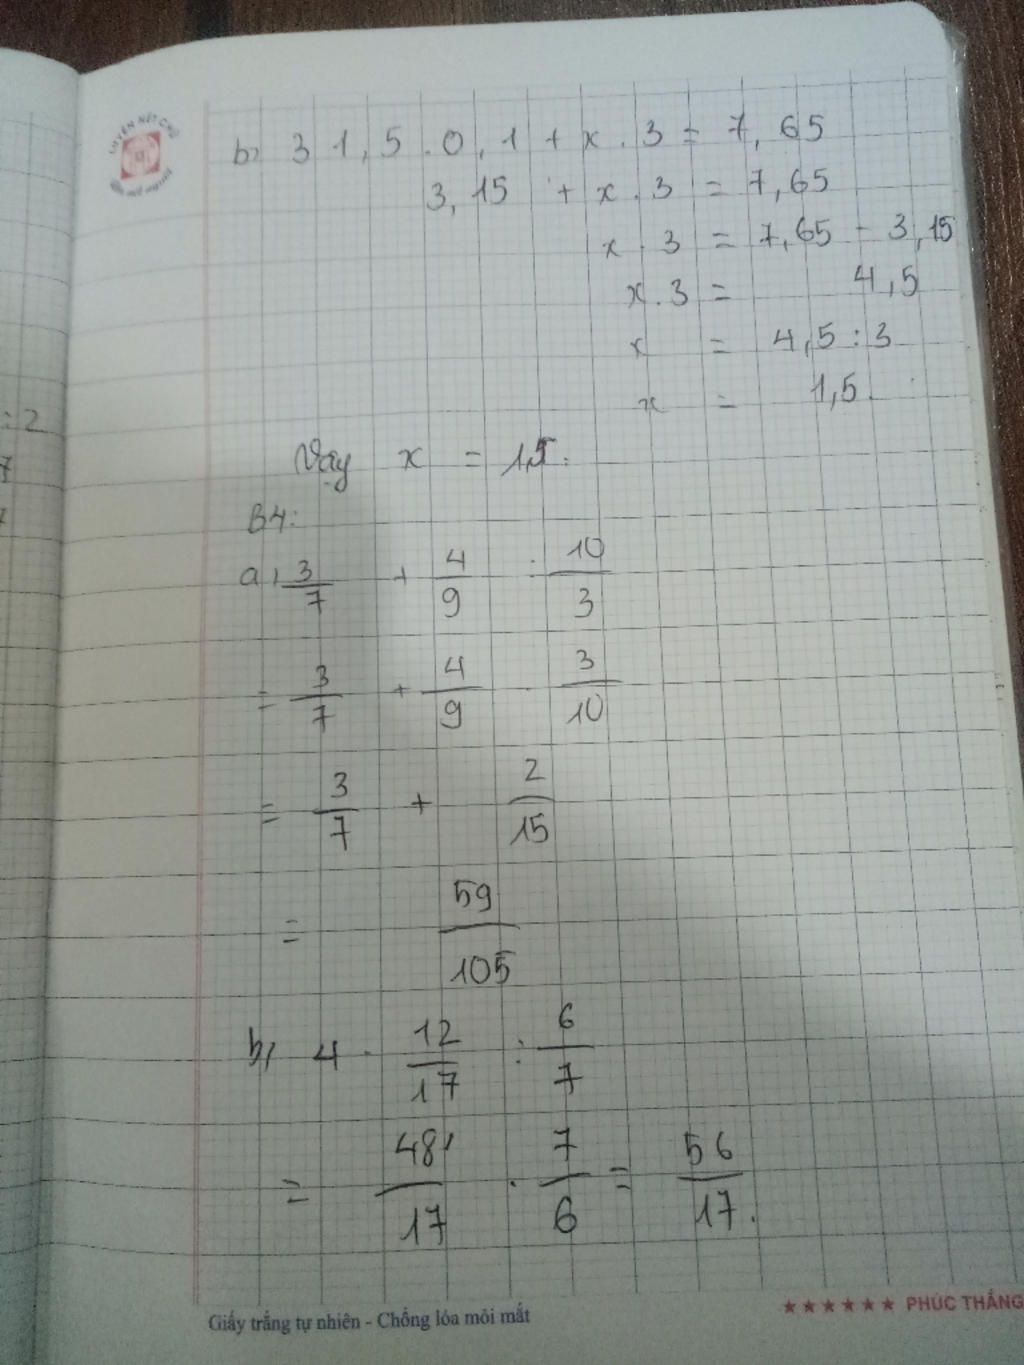 LUYỆN NÉT CHỮ
b) 31,5 . 0,1 + x . 3 = 7,65
3,15 + x . 3 = 7,65
x . 3 = 7,65 - 3,15
x . 3 = 4,5
x = 4,5 : 3
x = 1,5
Vậy x = 1,5.
B4:
a, 3/7 + 4/9 : 10/3
= 3/7 + 4/9 . 3/10
= 3/7 + 2/15
= 59/105
b, 4 . 12/17 : 6/7
= 48/17 . 7/6 = 56/17.
: 2
7
Giấy trắng tự nhiên - Chống lóa mỏi mắt
★★★★★★ PHÚC THẮNG